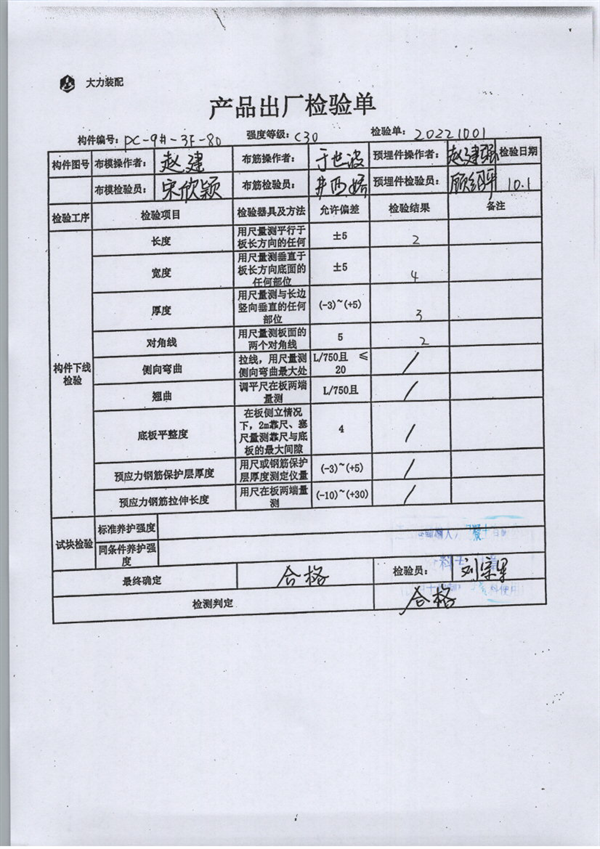 大力装配
产品出厂检验单
构件编号: PC-9#-3F-80 强度等级: C30 检验单: 20221001
构件图号 布模操作者: 赵建 布筋操作者: 于世波 预埋件操作者: 赵建强 检验日期
布模检验员: 宋欣颖 布筋检验员: 预埋件检验员: 10.1
检验工序 检验项目 检验器具及方法 允许偏差 检验结果 备注
构件下线检验
长度 用尺量测平行于板长方向的任何 ±5 2
宽度 用尺量测垂直于板长方向底面的任何部位 ±5 4
厚度 用尺量测与长边竖向垂直的任何部位 (-3)~(+5) 3
对角线 用尺量测板面的两个对角线 5 2
侧向弯曲 拉线，用尺量测侧向弯曲最大处 L/750且 ≤20 /
翘曲 调平尺在板两端量测 L/750且 /
底板平整度 在板侧立情况下，2m靠尺、塞尺量测靠尺与底板的最大间隙 4 /
预应力钢筋保护层厚度 用尺或钢筋保护层厚度测定仪量 (-3)~(+5) /
预应力钢筋拉伸长度 用尺在板两端量测 (-10)~(+30) /
试块检验 标准养护强度
同条件养护强度
最终确定 合格 检验员:
检测判定 合格